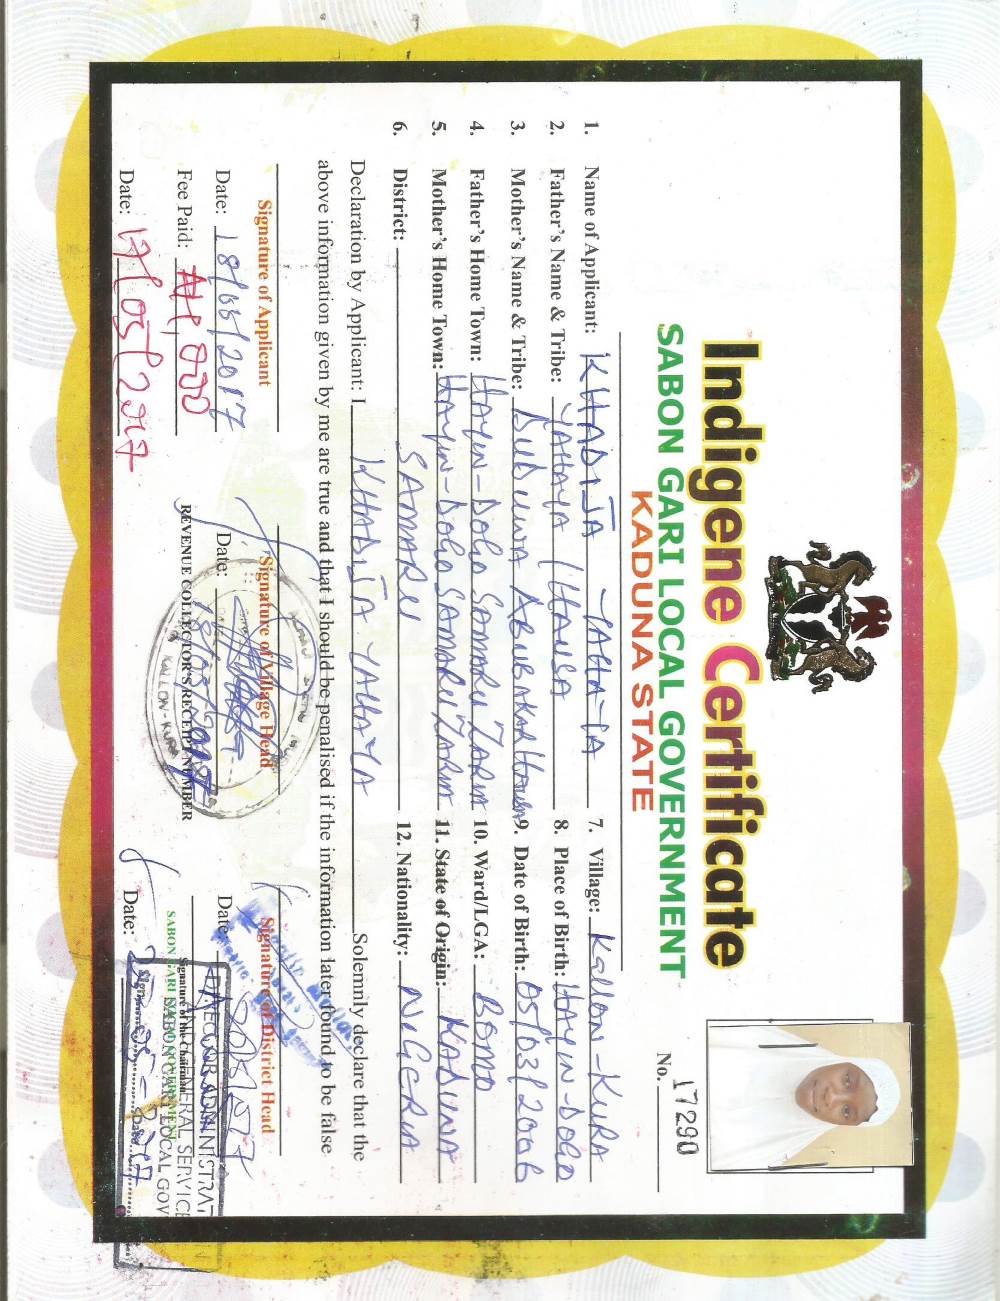 Indigene Certificate
SABON GARI LOCAL GOVERNMENT
KADUNA STATE
No. 17290
1. Name of Applicant: KHADIJA YAHAYA
2. Father's Name & Tribe: YAHAYA (HAUSA
3. Mother's Name & Tribe: ABUBAKAR HAUSA
4. Father's Home Town: HAYIN-DOGO SAMARU ZARIA
5. Mother's Home Town: HAYIN-DOGO SAMARU ZARIA
6. District: SAMARU
7. Village: Kallon-Kura
8. Place of Birth: HAYIN-DOGO
9. Date of Birth: 05/03/2006
10. Ward/LGA: BOMO
11. State of Origin: KADUNA
12. Nationality: NIGERIA
Declaration by Applicant: I KHADIJA YAHAYA Solemnly declare that the
above information given by me are true and that I should be penalised if the information later found to be false
Signature of Applicant
Date: 18/05/2017
Signature of Village Head
Date:
KALLON-KURA
Signature of District Head
Date
Fee Paid: ₦1,000
REVENUE COLLECTOR'S RECEIPT NUMBER
Signature of the Chairman
SABON GARI LOCAL GOVERNMENT
Date: 17/05/2017
Date:
SABON GARI LOCAL GOV